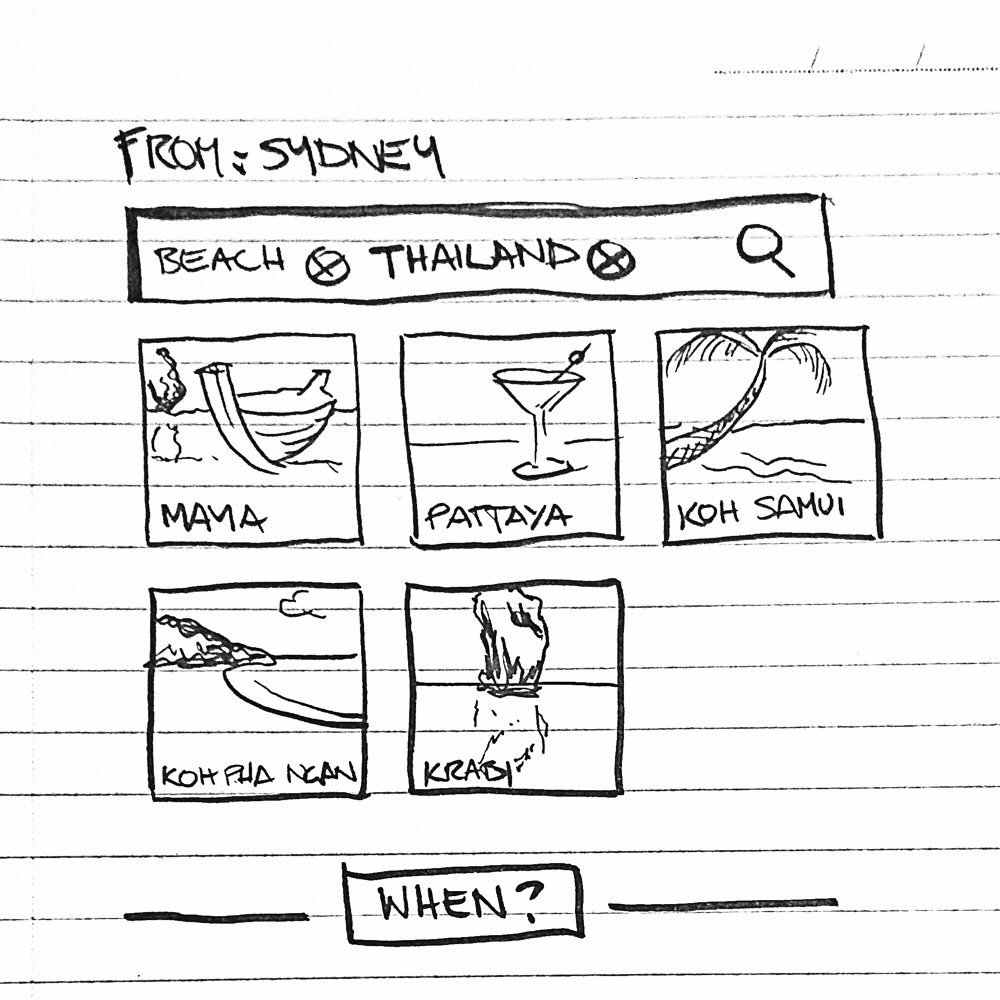 FROM: SYDNEY
BEACH ⊗ THAILAND ⊗
MAYA
PATTAYA
KOH SAMUI
KOH PHA NGAN
KRABI
WHEN?